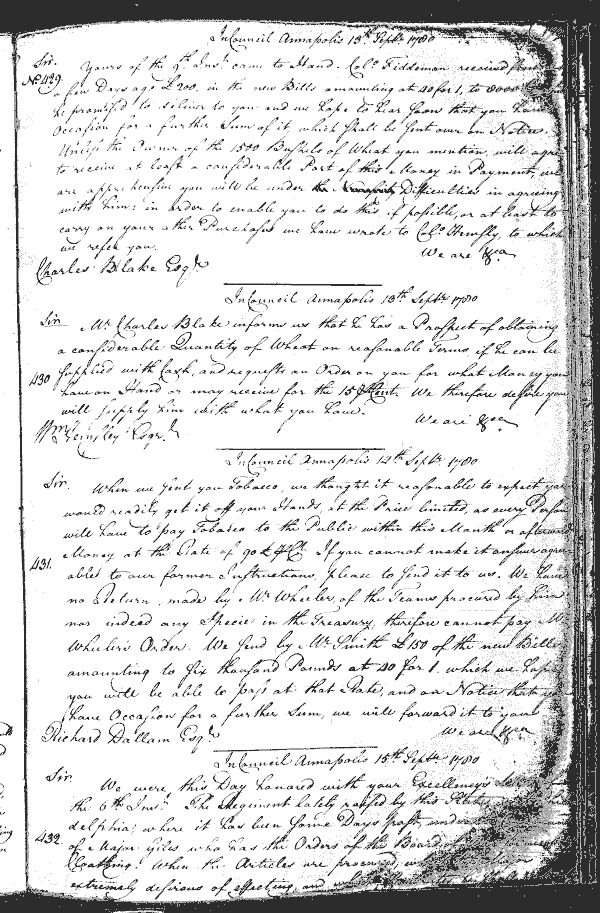 In Council Annapolis 13th Septr 1780
Sir.
No 429. Yours of the 9th Inst came to Hand. Colo Fiddeman received from
a few Days ago £200, in the new Bills amounting at 40 for 1, to 8000
he promised to deliver to you and we hope to hear soon that you have
Occasion for a further Sum of it, which shall be sent over on Notice.
Unless the Owner of the 1500 Bushels of Wheat you mention, will agree
to receive at least a considerable Part of this Money in Payment, we
are apprehensive you will be under the Difficulties in agreeing
with him: in order to enable you to do this if possible, or at least to
carry on your other Purchases we have wrote to Colo Hemsly, to which
we refer you. We are &ca
Charles Blake Esqr
In Council Annapolis 13th Septr 1780
Sir
Mr Charles Blake informs us that he has a Prospect of obtaining
a considerable Quantity of Wheat on reasonable Terms if he can be
430 supplied with Cash, and requests an Order on you for what Money you
have on Hand or may receive for the 15 ⅌Cent. We therefore desire you
will supply him with what you have. We are &ca
Wm Hemsley Esqr
In Council Annapolis 14th Septr 1780
Sir.
When we sent you Tobacco, we thought it reasonable to expect you
would readily get it off your Hands, at the Price limited, as every Person
will have to pay Tobacco to the Public within this Month or afterward
431. Money at the Rate of 90 £ ⅌Ct. If you cannot make it answer agree-
able to our former Instructions, please to send it to us. We have
no Return, made by Mr Wheeler, of the Teams procured by him
nor indeed any Specie in the Treasury, therefore cannot pay Mr
Wheeler's Order. We send by Mr Smith £150 of the new Bills
amounting to six thousand Pounds at 40 for 1. which we hope
you will be able to pass at that Rate, and on Notice that you
have Occasion for a further Sum, we will forward it to you
Richard Dallam Esqr We are &ca
In Council Annapolis 15th Septr 1780
Sir.
We were, this Day honored with your Excellency's
the 6th Inst. The Regiment lately raised by this State
delphia; where it has been some Days past, under
432 of Major Giles who has the Orders of the Board of
Cloathing. When the Articles are procured, we
extremely desirous of effecting, and